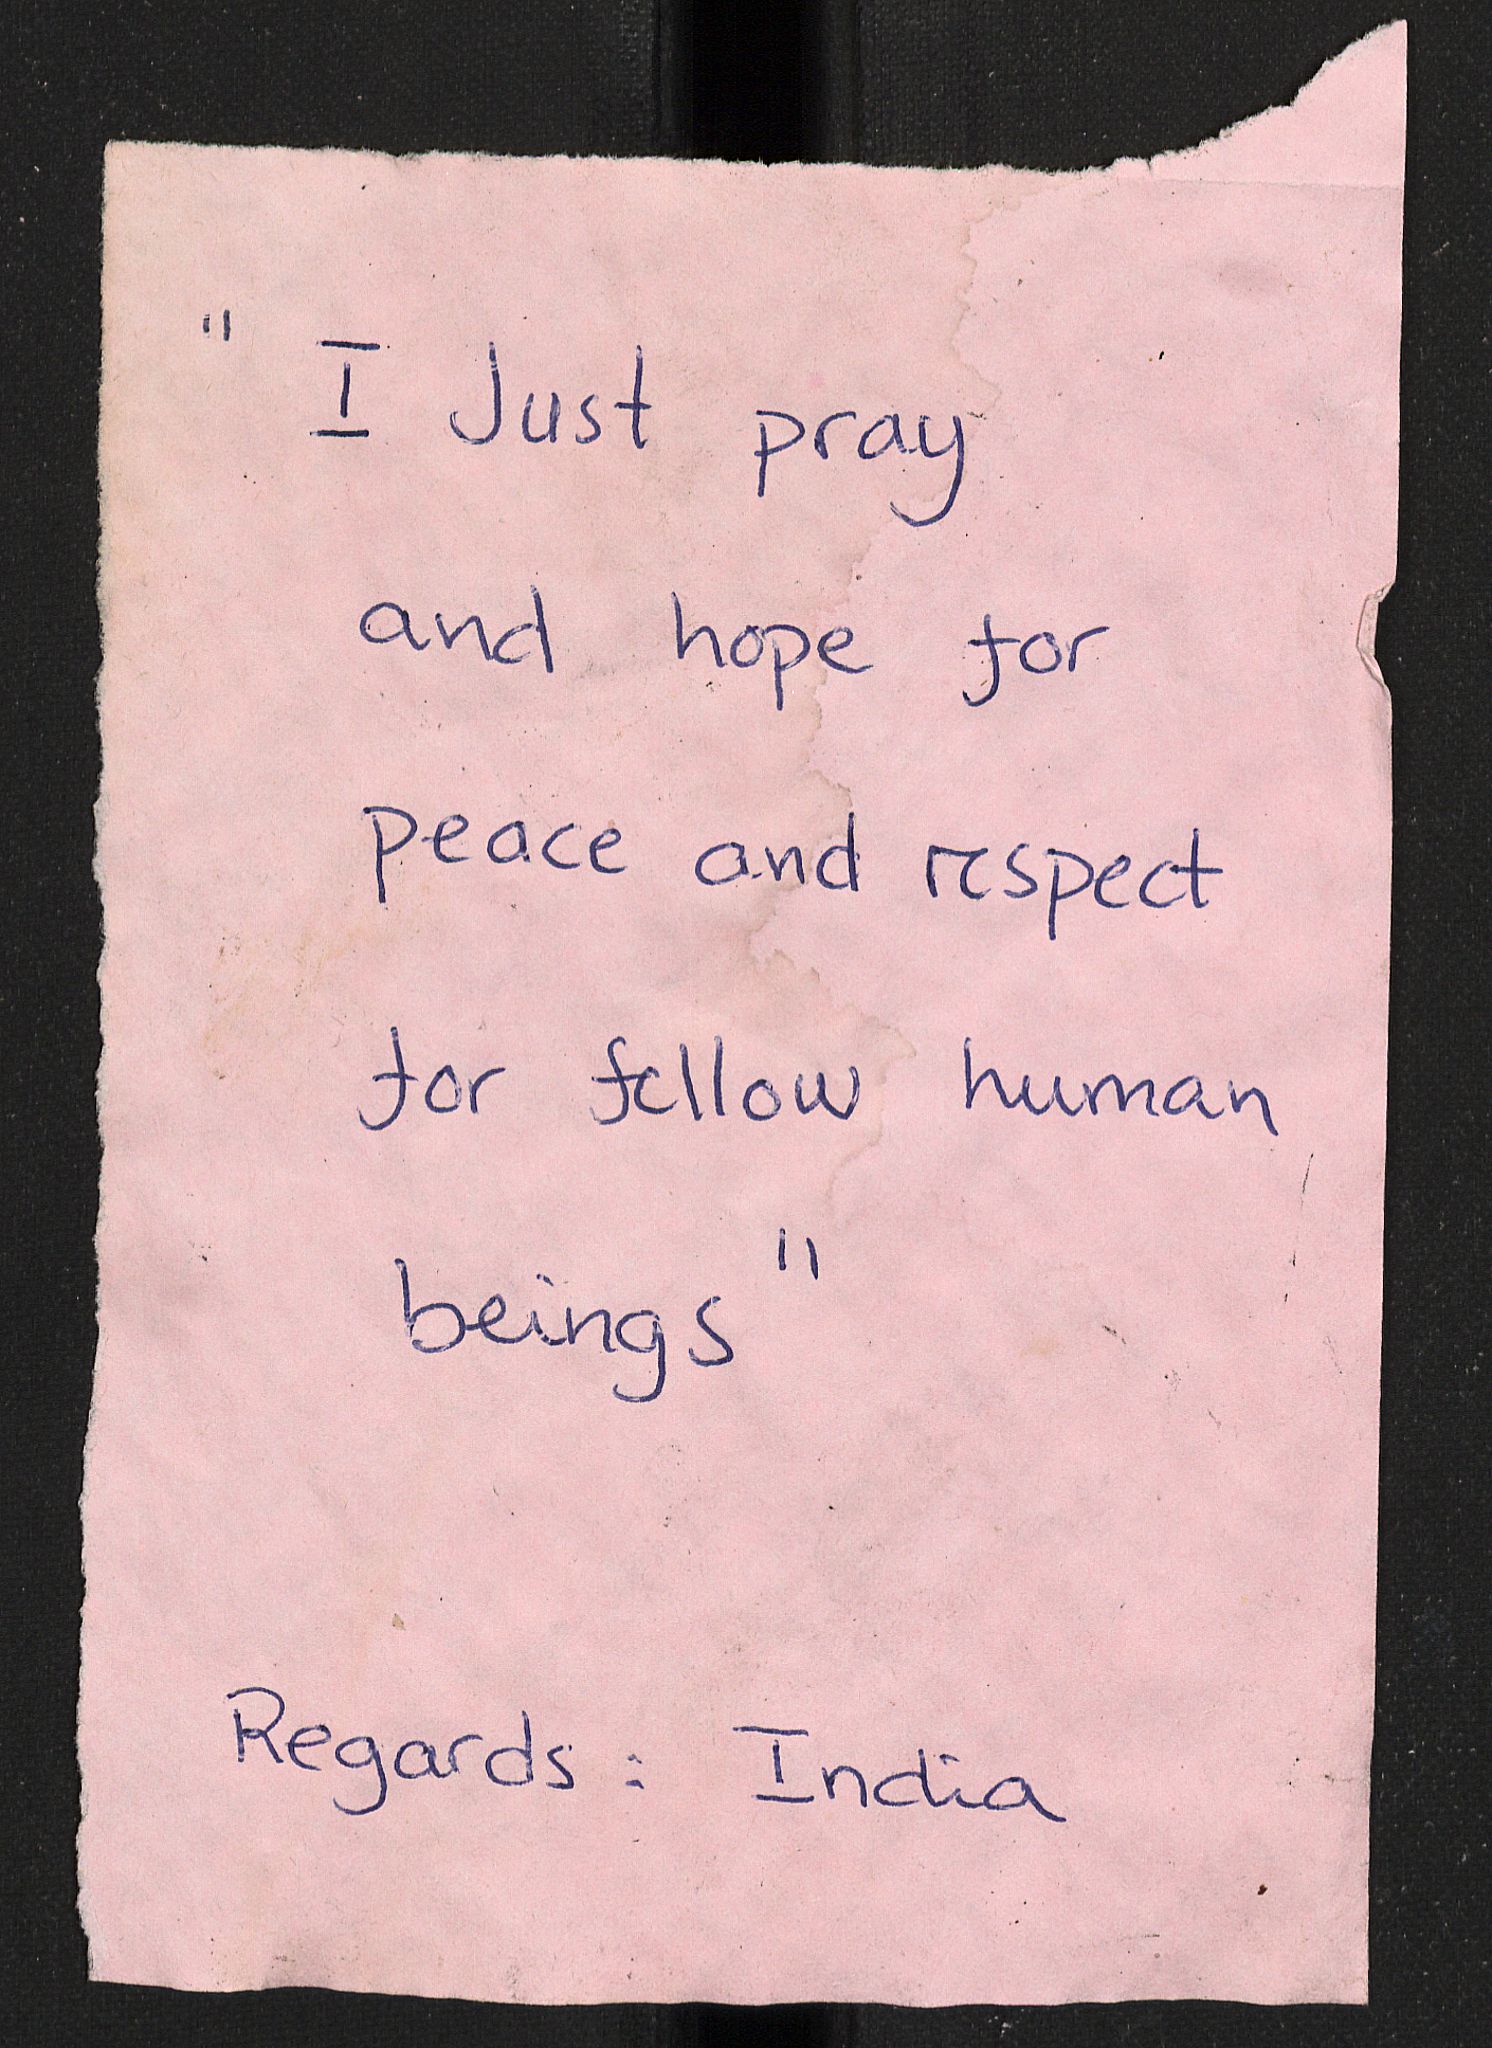 " I Just pray
and hope for
peace and respect
for fellow human
beings "
Regards : India